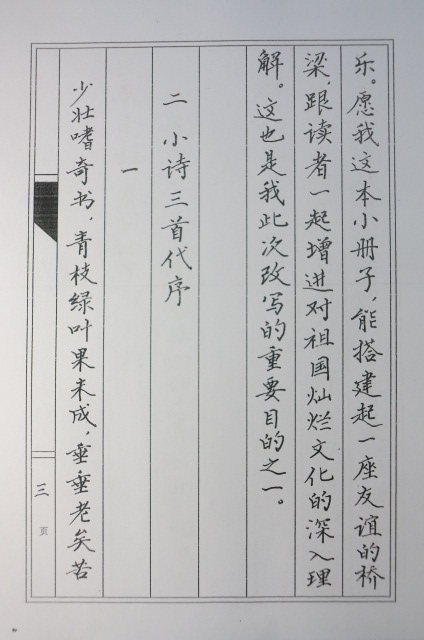 乐。愿我这本小册子，能搭建起一座友谊的桥
梁，跟读者一起增进对祖国灿烂文化的深入理
解。这也是我此次改写的重要目的之一。
二 小诗三首代序
一
少壮嗜奇书，青枝绿叶果未成，垂垂老矣苦
三
页